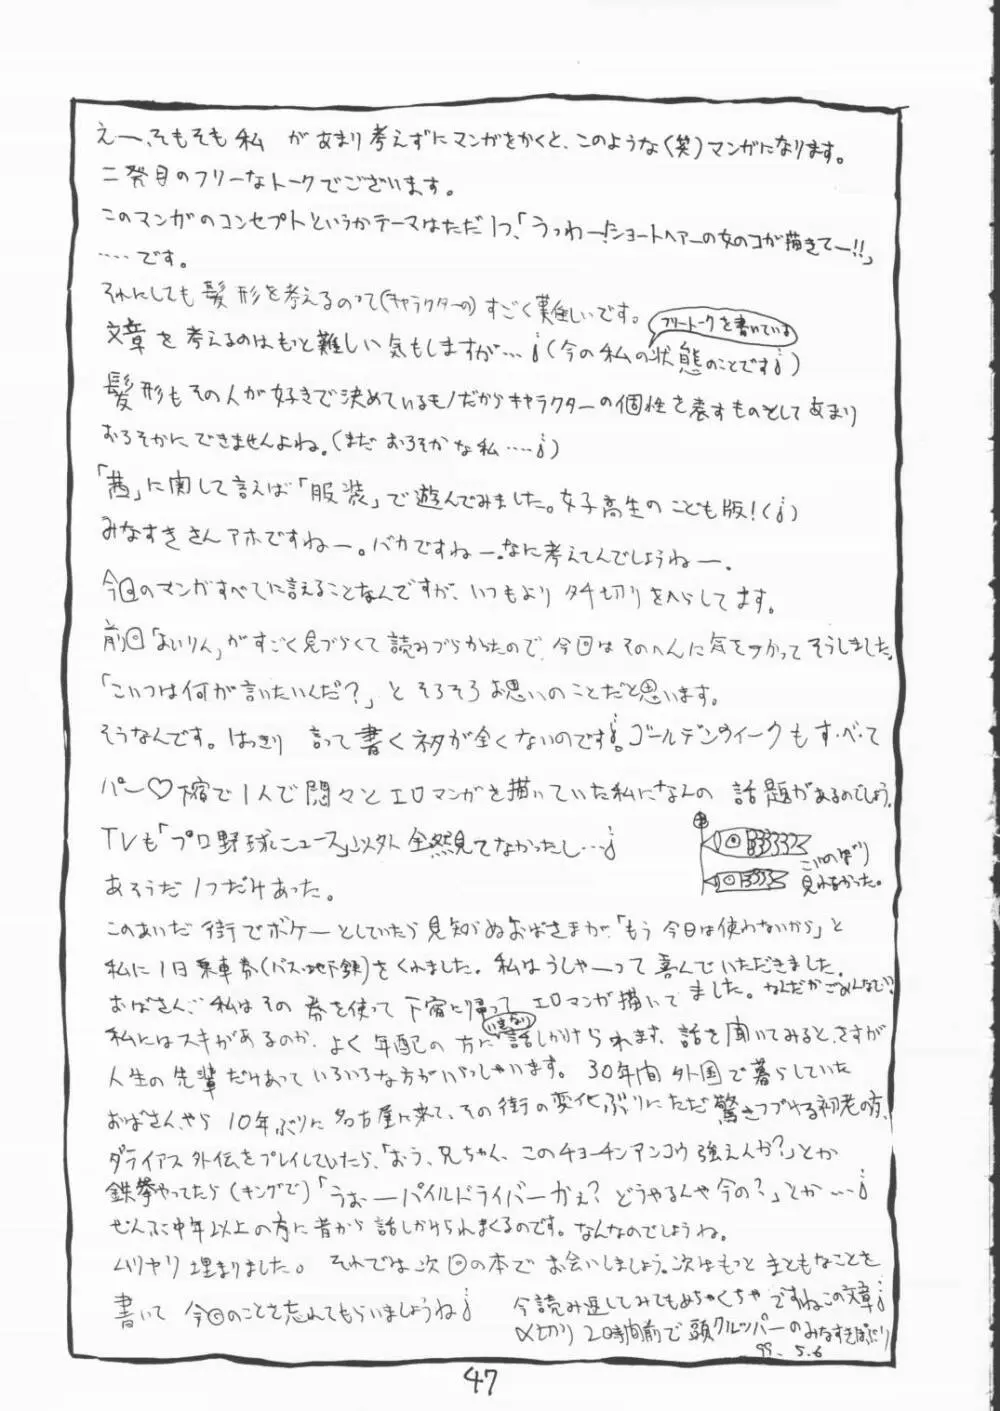 えー、そもそも私 があまり考えずにマンガをかくと、このような(笑)マンガになります。
二発目のフリーなトークでございます。
このマンガのコンセプトというかテーマはただ1つ、「うっわー!ショートヘアーの女のコが描きてー!!」
……です。
それにしても髪形を考えるのって(キャラクターの)すごく難しいです。
フリートークを書いている
文章を考えるのはもっと難しい気もしますが…(今の私の状態のことです)
髪形もその人が好きで決めているモノだからキャラクターの個性を表すものとしてあまり
おろそかにできませんよね。(まだおろそかな私……)
「茜」に関して言えば「服装」で遊んでみました。女子高生のこども版!()
みなすきさんアホですねー。バカですねー。なに考えてんでしょうねー。
今回のマンガすべてに言えることなんですが、いつもよりタチ切りをへらしてます。
前回「よいりん」がすごく見づらくて読みづらかったので、今回はそのへんに気をつかってそうしました。
「こいつは何が言いたいんだ?」とそろそろお思いのことだと思います。
そうなんです。はっきり言って書くネタが全くないのです。ゴールデンウィークもす・べ・て
パー♡下宿で1人で悶々とエロマンガを描いていた私になんの話題があるのでしょう。
TVも「プロ野球ニュース」以外全然見てなかったし…
こいのぼり
見れなかった。
あそうだ1つだけあった。
このあいだ街でボケーとしていたら見知らぬおばさまが、「もう今日は使わないから」と
私に1日乗車券(バス・地下鉄)をくれました。私はうしゃーって喜んでいただきました。
おばさん、私はその券を使って下宿に帰ってエロマンガ描いてました。なんだかごめんなさい?
私にはスキがあるのか、よく年配の方にいきなり話しかけられます。話を聞いてみると、さすが
人生の先輩だけあっていろいろな方がいらっしゃいます。30年間外国で暮らしていた
おばさんやら10年ぶりに名古屋に来て、その街の変化ぶりにただ驚きつづける初老の方、
ダライアス外伝をプレイしていたら、「おう、兄ちゃん、このチョーチンアンコウ強えんか?」とか
鉄拳やってたら(キングで)「うぉーパイルドライバーかぇ?どうやるんや今の?」とか…
ぜんぶ中年以上の方に昔から話しかけられまくるのです。なんなのでしょうね。
ムリヤリ埋まりました。それでは次回の本でお会いしましょう。次はもっとまともなことを
書いて今回のことを忘れてもらいましょうね
今読み返してみてもめちゃくちゃですねこの文章
〆切り20時間前で頭クルッパーのみなすきぽぷり
99. 5.6
47